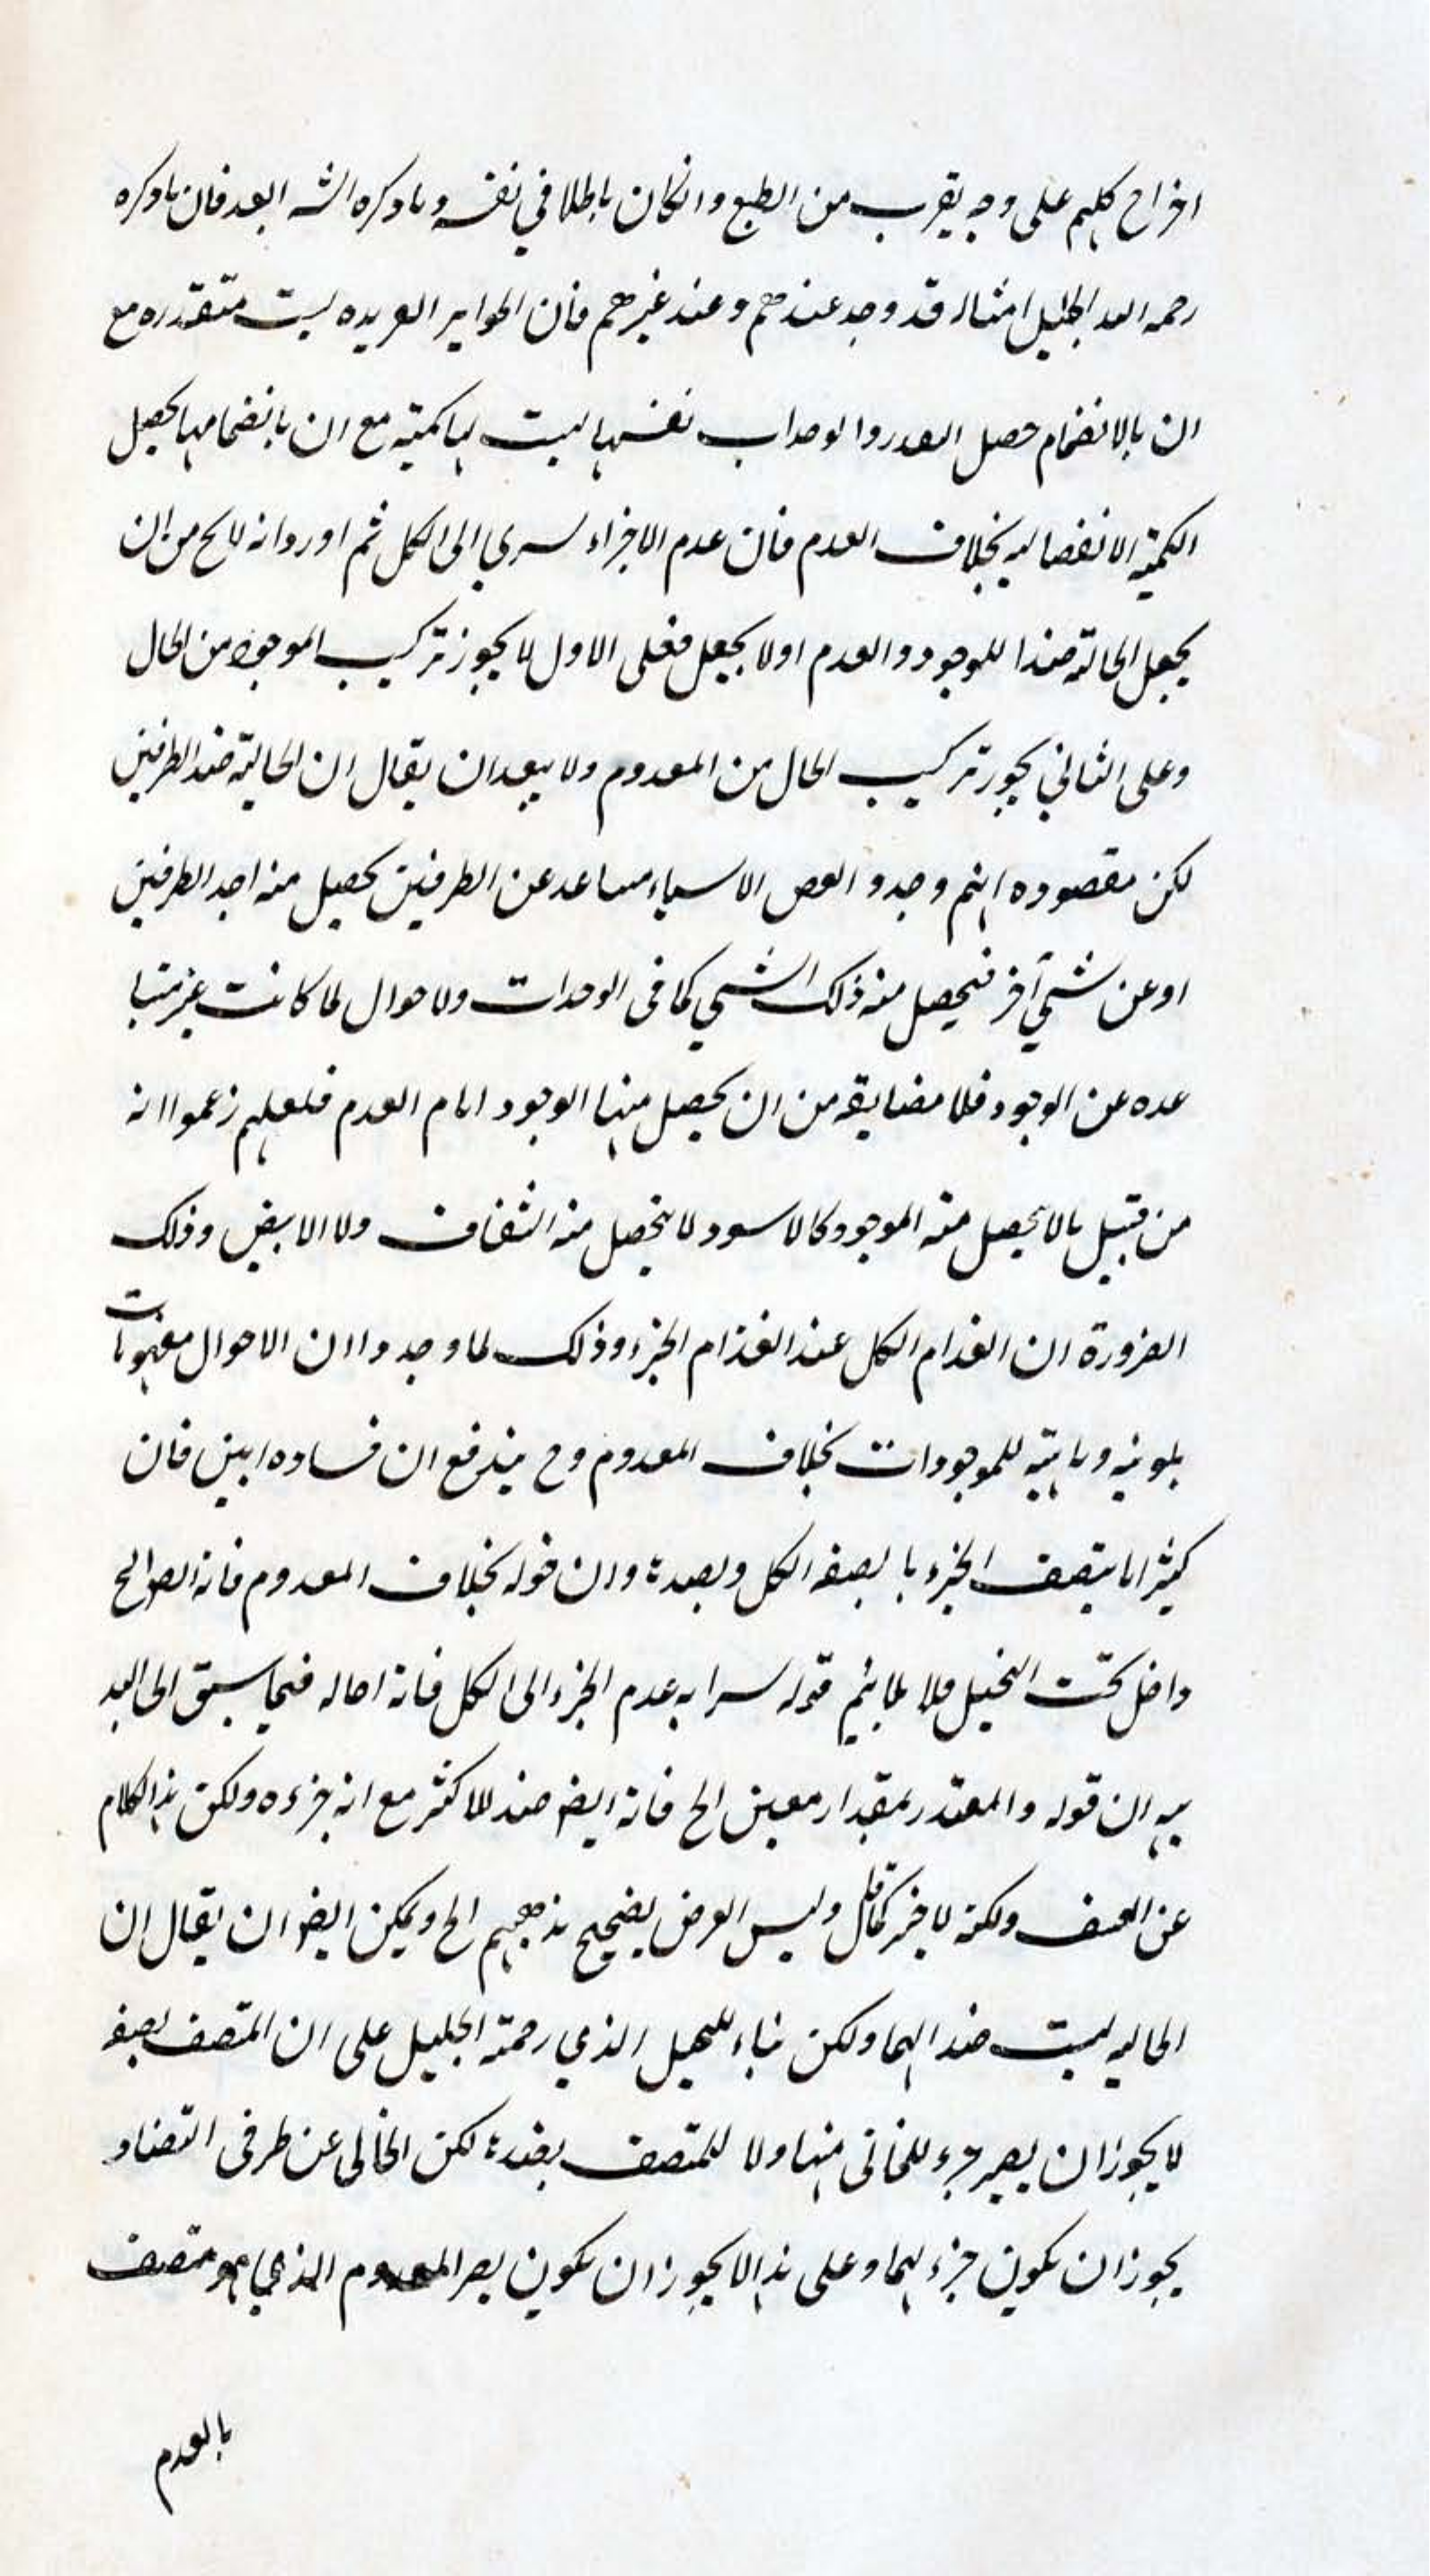 اخراج كلهم على وجه يقرب من الطبع وانكان باطلا في نفسه وما ذكره الشه ابعد فان ما ذكره
رحمه الله الجليل امثاله قد وجد عندهم وعند غيرهم فان الجواهر الفريده ليست متقدره مع
ان بالانضمام حصل القدر والوحدات نفسها ليست لها كمية مع ان بانضمامها يحصل
الكمية الانفصاليه بخلاف العدم فان عدم الاجزاء يسري الى الكل ثم اورد انه لا يخ من ان
يجعل الحالته ضدا للوجود والعدم اولا يجعل فعلى الاول لا يجوز تركيب الموجود من الحال
وعلى الثاني يجوز تركيب الحال من المعدوم ولا يبعد ان يقال ان الحالية ضد الطرفين
لكن مقصوده انهم وجدوا بعض الاشياء متباعد عن الطرفين يحصل منه احد الطرفين
او عن شئ آخر فيحصل منه ذلك الشي كما فى الوحدات ولاحوال لما كانت غير متبا
عده عن الوجود فلا مضايقه من ان يحصل منها الوجود امام العدم فلعلهم زعموا انه
من قبيل مالا يحصل منه الموجود كالاسود لا يتحصل منه الشفاف ولا الابيض وذلك
الضرورة ان انعدام الكل عند انعدام الجزء وذلك لما وجدوا ان الاحوال مفهومات
بلونيه وماهيته للموجودات بخلاف المعدوم وح يندفع ان فساده ابين فان
كثيرا ما يتصف الجزء بما بصفه الكل وبضده وان قوله بخلاف المعدوم فانه الصوالح
داخل تحت التخيل فلا يلايم قوله سرايه عدم الجزء الى الكل فانه احاله فيما سبق الى البد
يهه ان قوله والمقدر بمقدار معين الخ فانه ايضا ضد للاكثر مع انه جزءه ولكن هذا الكلام
عن التعسف ولكنه لا خير كما قال وليس الغرض تصحيح مذهبهم الخ ويمكن ايضا ان يقال ان
الحاليه ليست ضدا لهما ولكن بناء التخيل الذي رحمة الجليل على ان المتصف بصفه
لا يجوز ان يصير جزء للخالى منها ولا للمتصف بضده لكن الخالى عن طرفى التضاد
يجوز ان يكون جزء لهما وعلى هذا لا يجوز ان يكون يصر المعدوم الذي هو متصف
بالعدم